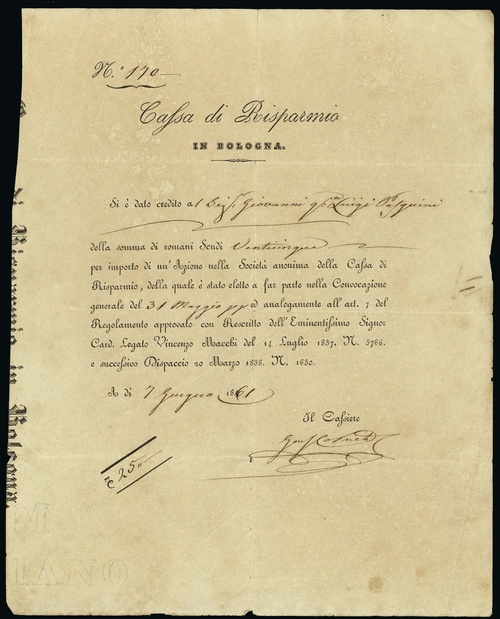 N.º 170
Cassa di Risparmio
IN BOLOGNA.
Si è dato credito al Sig. Giovanni q.m Luigi
della somma di romani Scudi Venticinque
per importo di un'Azione nella Società anonima della Cassa di
Risparmio, della quale è stato eletto a far parte nella Convocazione
generale del 31 Maggio pp ed analogamente all'art. 7 del
Regolamento approvato con Rescritto dell'Eminentissimo Signor
Card. Legato Vincenzo Macchi del 14 Luglio 1837. N. 5766.
e successivo Dispaccio 20 Marzo 1838. N. 1630.
A dì 7 Giugno 1861
Il Cassiere
25